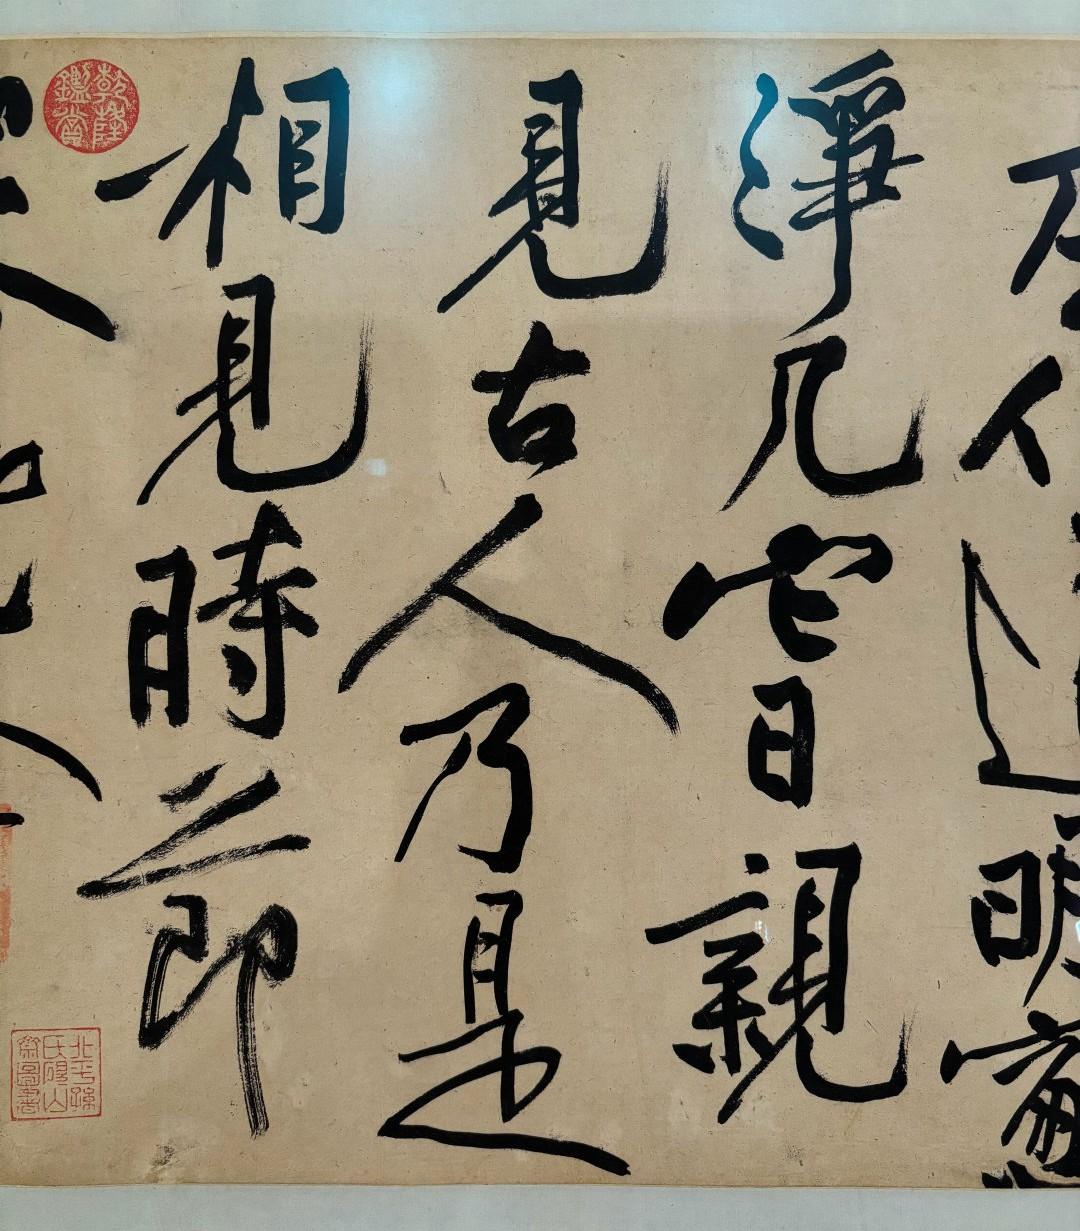 明窓
淨几它日親
見古人乃是
相見時節
乾隆鑑賞
北平孫氏硯山齋圖書